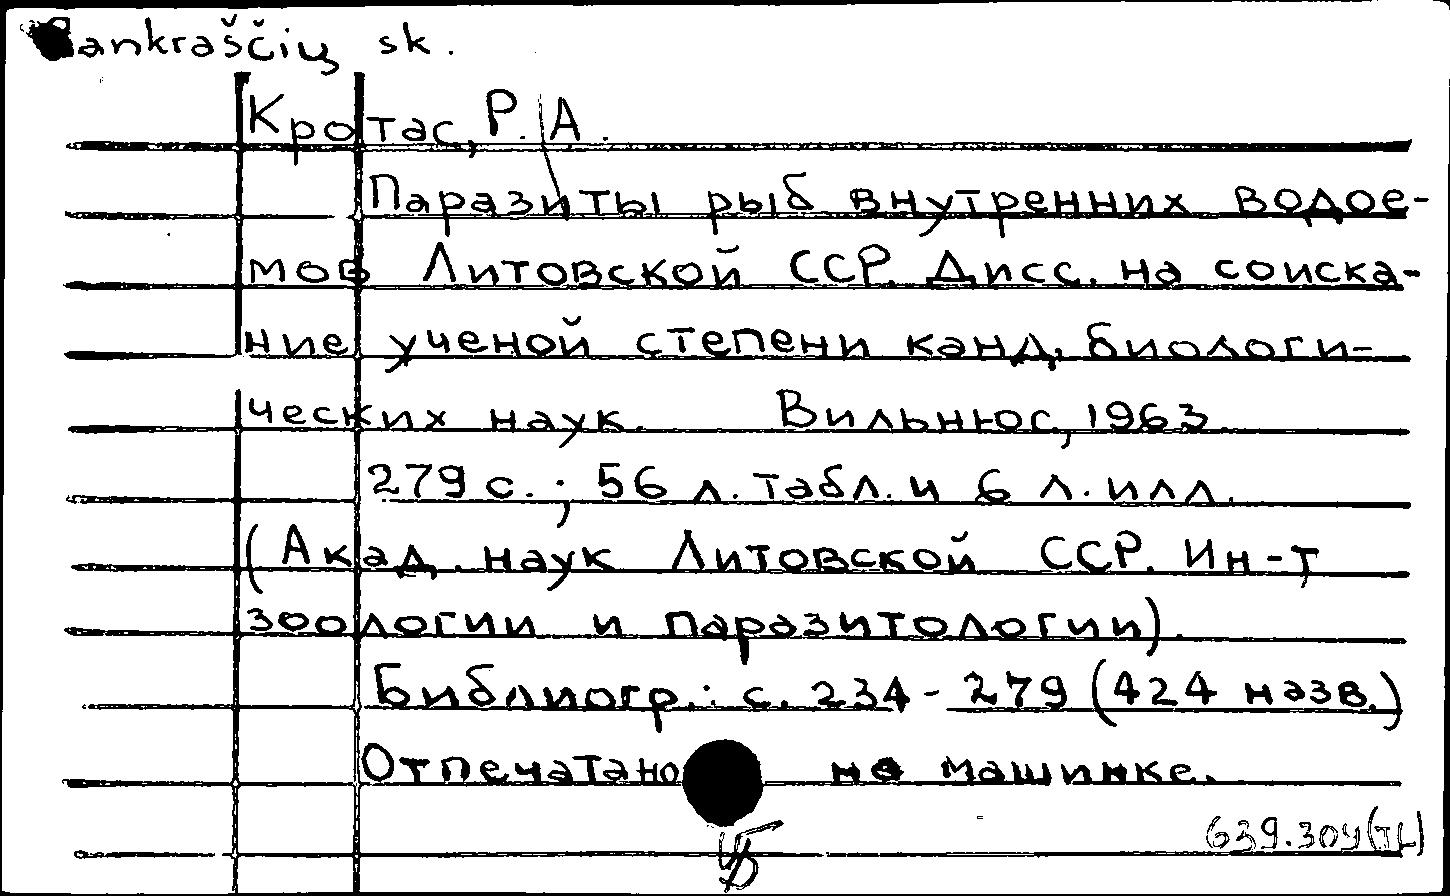 Rankraščių sk.
Кротас, Р. А.
Паразиты рыб внутренних водое-
мов Литовской ССР. Дисс. на соиска-
ние ученой степени канд. биологи-
ческих наук. Вильнюс, 1963.
279 с.; 56 л. табл. и 6 л. илл.
(Акад. наук Литовской ССР. Ин-т
зоологии и паразитологии).
Библиогр.: с. 234-279 (424 назв.)
Отпечатано на машинке.